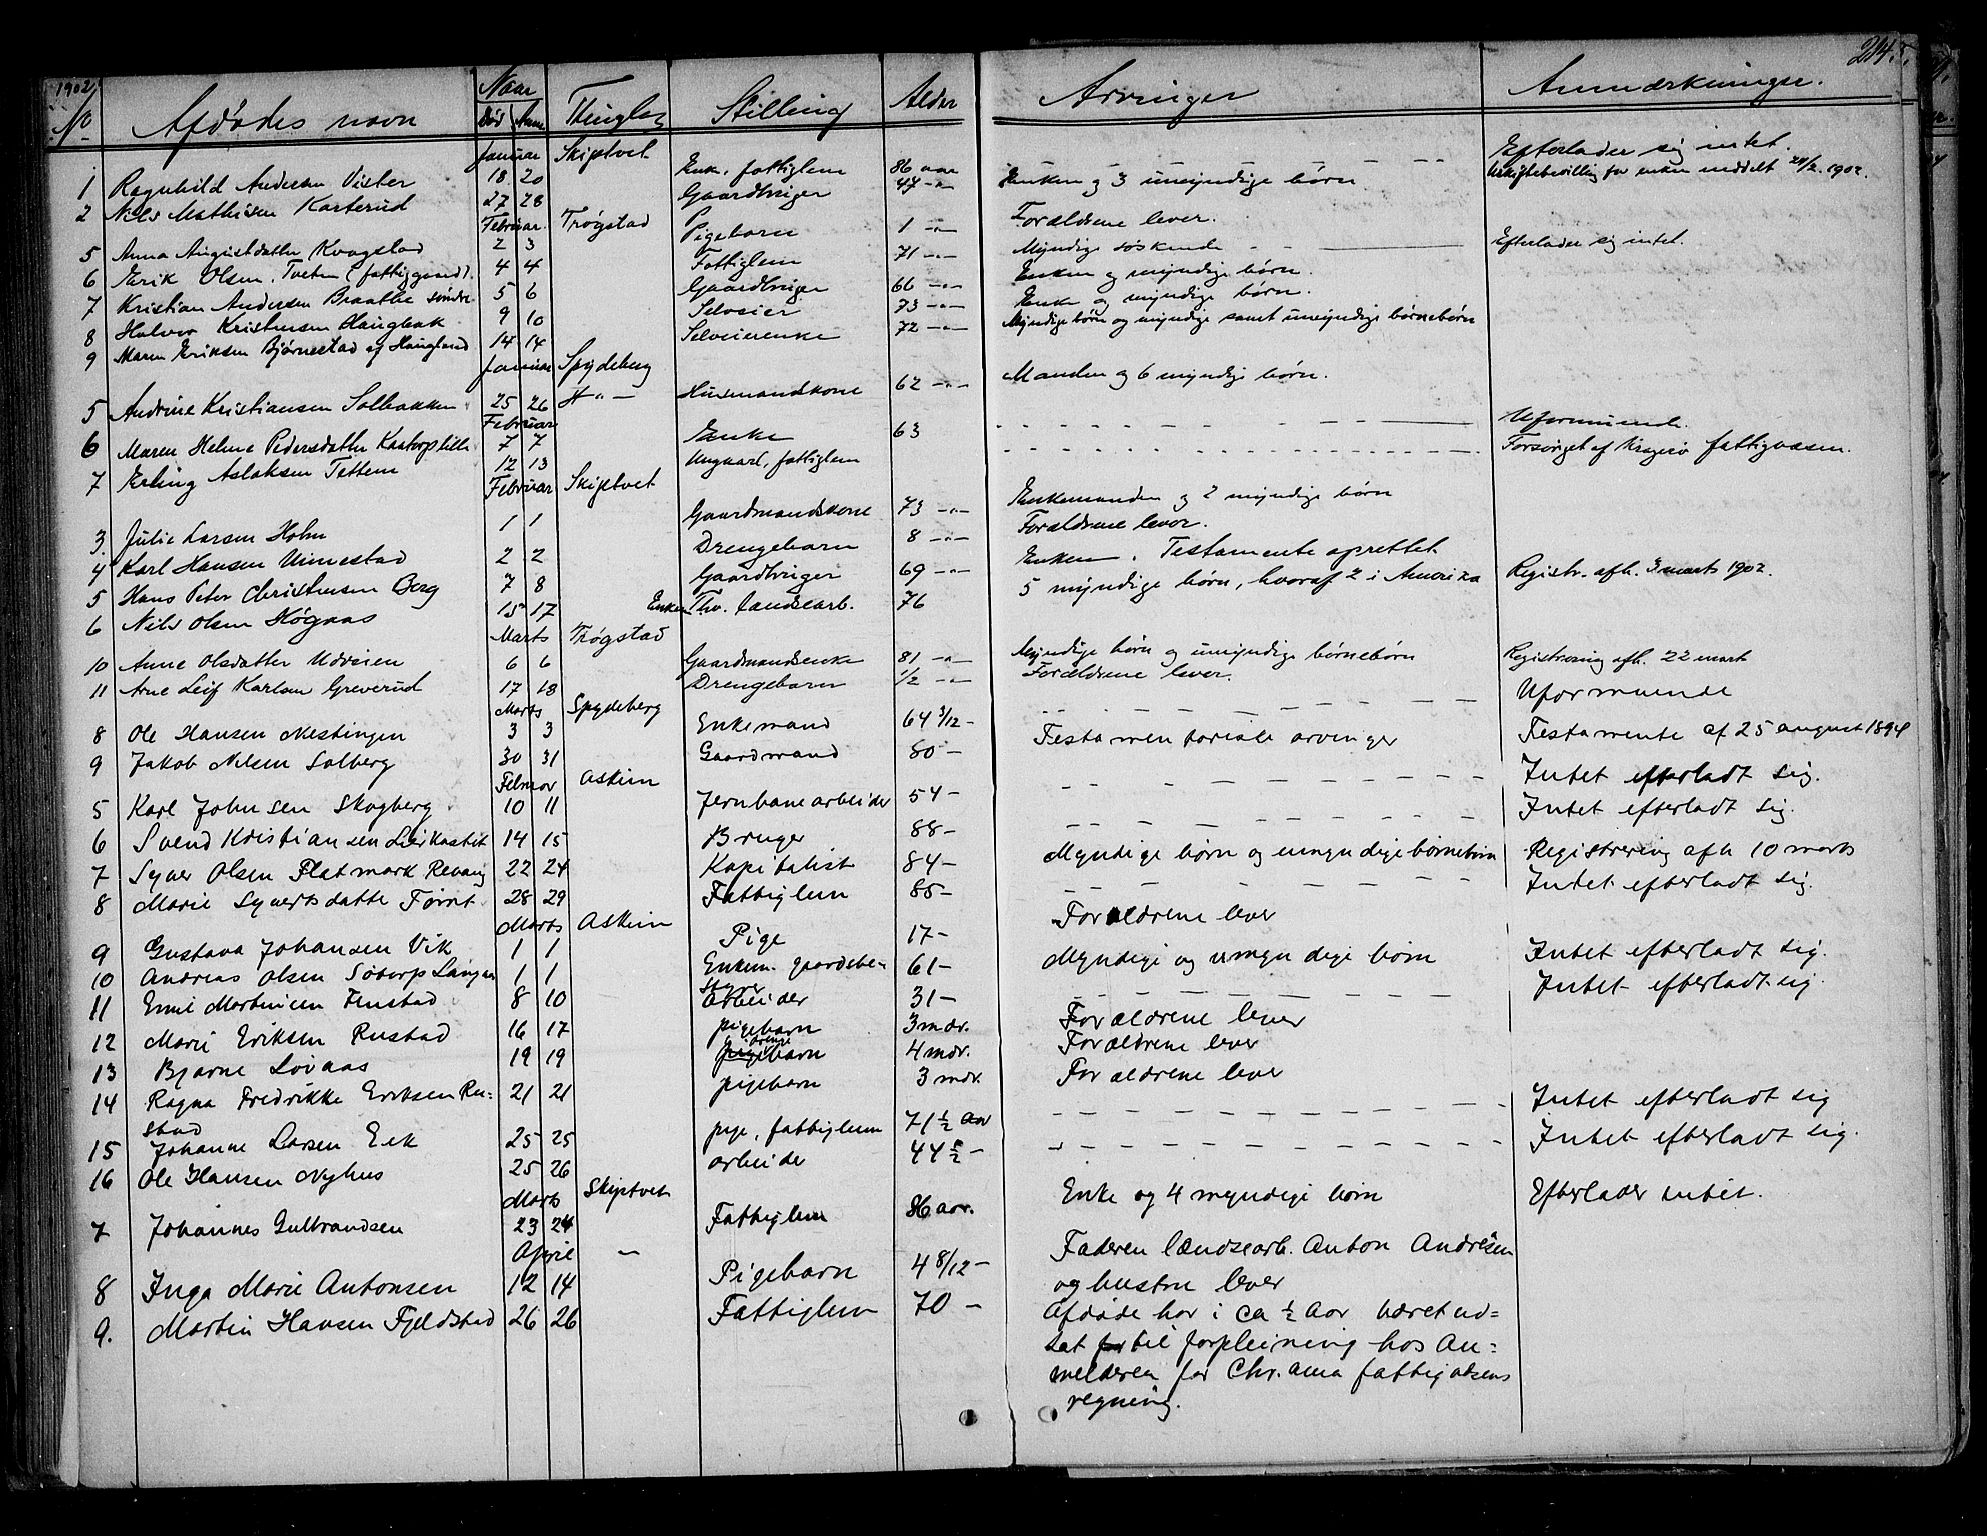 214.
1902.
No Afdødes navn Naar Død Anm Thinglag Stilling Alder Arvinger Anmærkninger.
Januar Skiptvet
1 Ragnhild Andersen Vister 18 20 Enke, fattiglem 86 aar — — — — Efterlader sig intet.
2 Nils Mathisen Karterud 27 28 Gaardbruger 47 -"- Enken og 3 umyndige børn. Uskiftebevilling for enken meddelt 24/2 1902.
Februar. Trøgstad
5 Anna Augustdatter Kvagstad 2 3 Pigebarn 1 -"- Forældrene lever.
6 Erik Olsen, Tveten (fattiggaard). 4 4 Fattiglem 71 -"- Myndige søskende - - — Efterlader sig intet.
7 Kristian Andersen Braathe søndre 5 6 Gaardbruger 66 -"- Enken og myndige børn.
8 Halvor Kristensen Haugbak 9 10 Selveier 73 -"- Enke og myndige børn.
9 Maren Eriksen Bjørnestad af Haugland 14 14 Selveierenke 72 -"- Myndige børn og myndige samt umyndige børnebørn
Januar Spydeberg
5 Andrine Kristiansen Solbakken 25 26 -"- Husmandskone 62 -"- Manden og 6 myndige børn.
Februar
6 Maren Helene Pedersdatter Kastorp lille 7 7 Enke 63 - - - - - Uformuende.
7 Erling Aslaksen Tettem 12 13 Ungkarl, fattiglem - - - - - Forsørget af Kragerø fattigvæsen.
Februar Skiptvet
3. Julie Larsen Holm 1 1 Gaardmandskone 73 -"- Enkemanden og 2 myndige børn
4 Karl Hansen Unnestad 2 2 Drengebarn 8 -"- Forældrene lever.
5 Hans Peter Christensen Berg 7 8 Gaardbruger 69 -"- Enken. Testamente oprettet.
6 Nils Olsen Høgnas 15 17 Enkem. Thv. landsearb. 76 5 myndige børn, hvoraf 2 i Amerika Registr. afh. 3 marts 1902.
Marts Trøgstad
10 Anne Olsdatter Udveien 6 6 Gaardmandsenke 81 -"- Myndige børn og umyndige børnebørn Registrering afh. 22 mart
11 Arne Leif Karlsen Greverud 17 18 Drengebarn 1/2 -"- Forældrene lever.
Marts Spydeberg
8 Ole Hansen Mestingen 3 3 Enkemand 64 3/12 - — — — — Uformuende
9 Jakob Nilsen Solberg 30 31 Gaardmand 80 - Testamentariske arvinger Testamente af 25 august 1894
Februar Askim
5 Karl Johnsen Skogberg 10 11 Jernbanearbeider 54 - — — — — Intet efterladt sig.
6 Svend Kristiansen Leirkastet 14 15 Bruger 88 - — — — — Intet efterladt sig.
7 Syver Olsen Flatmark Revaug 22 24 Kapitalist 84 - Myndige børn og umyndige børnebørn Registrering afh 10 marts
8 Marie Syvertsdatte Fornt 28 29 Fattiglem 85 - — — — — Intet efterladt sig.
Marts Askim
9 Gustava Johansen Vik 1 1 Pige 17 - Forældrene lever
10 Andreas Olsen Søtorp Langnes 1 1 Enkem. gaardsbe- 61 - Myndige og umyndige børn Intet efterladt sig.
styrer
11 Emil Martinisen Finstad 8 10 Arbeider 31 - — — — — Intet efterladt sig.
12 Marie Eriksen Rustad 16 17 pigebarn 3 mdr. Forældrene lever
13 Bjarne Løvaas 19 19 drengebarn 4 mdr. Forældrene lever
14 Ragna Fredrikke Eriksen Ru= 21 21 pigebarn 3 mdr. Forældrene lever
stad
15 Johanne Larsen Eek 25 25 pige, fattiglem 71 1/2 aar — — — — Intet efterladt sig
16 Ole Hansen Nyhus 25 26 arbeider 44 5/12 - — — — — Intet efterladt sig.
Marts Skiptvet
7 Johannes Gulbrandsen 23 24 Fattiglem 86 aar. Enke og 4 myndige børn Efterlader intet.
April —
8 Inga Marie Antonsen 12 14 Pigebarn 4 8/12 - Faderen landsearb. Anton Andresen
og hustru lever
9. Martin Hansen Fjeldstad 26 26 Fattiglem 70 - Afdøde har i ca 1/2 Aar været ud=
sat for til forpleining hos An=
melderen for Chr.ania fattigvæsens
regning.